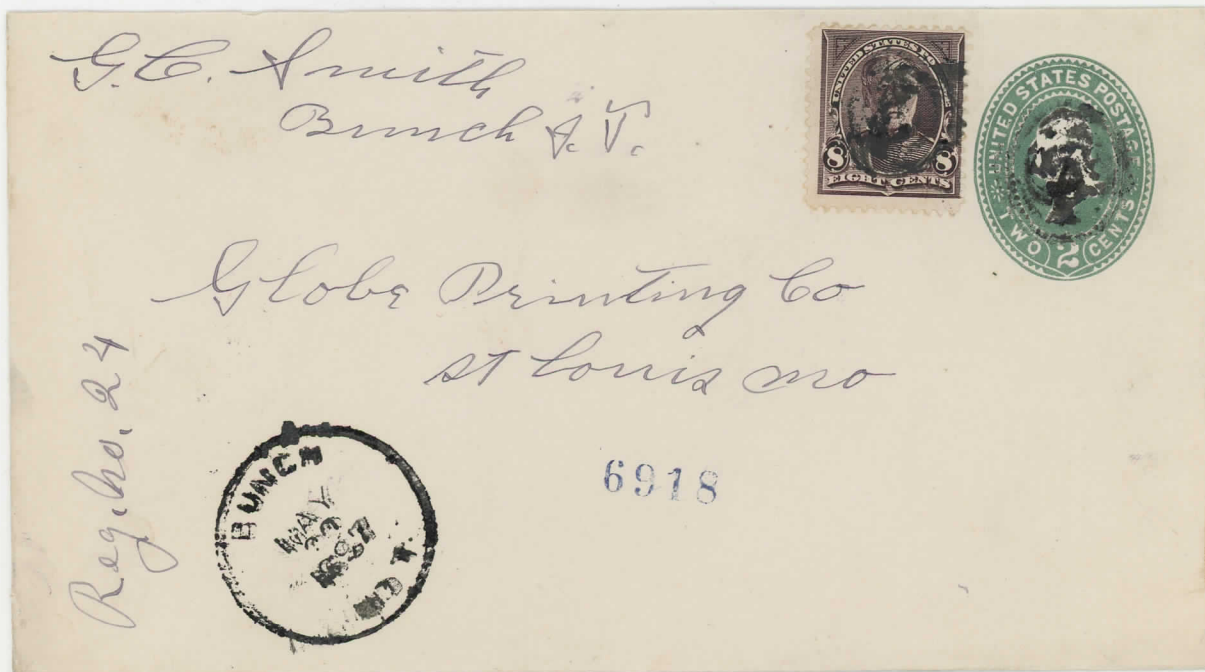 G. C. Smith
Bunch I. T.
UNITED STATES PO
8 8
EIGHT CENTS
UNITED STATES POSTAGE
TWO 2 CENTS
Globe Printing Co
St Louis Mo
Reg. No. 24
6918
BUNCH
MAY
1897